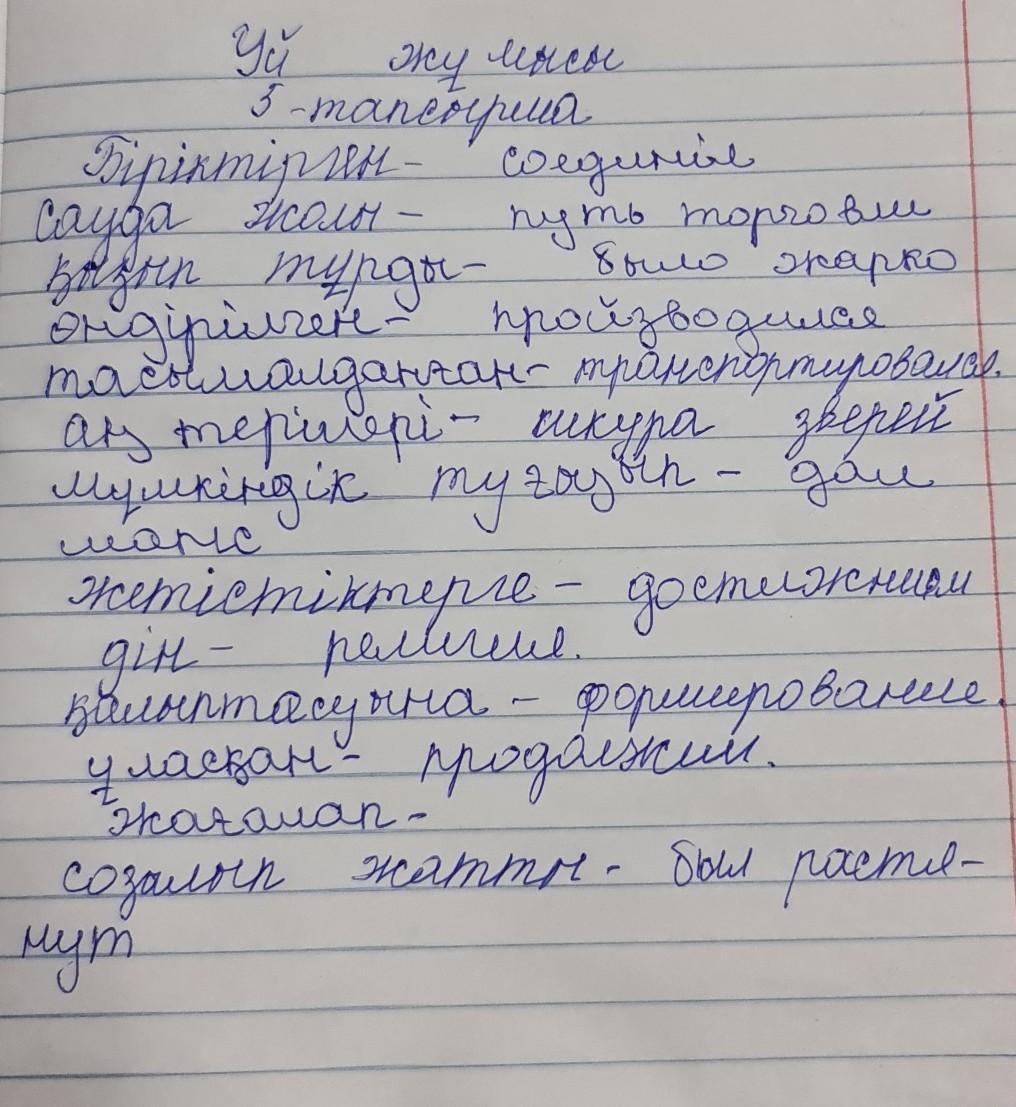 Үй жұмысы
5-тапсырма
Біріктірген- соединил
Сауда жолы - путь торговли
қызып тұрды- было жарко
өндірілген- пройзводился
тасымалданған- транспортировался.
аң терілері - шкура зверей
мүмкіндік туғызып - дал
шанс
жетістіктерге - достижниям
дін - религия.
қалыптасуына - формирование.
ұласқан- продолжил.
жағалап-
созылып жатты- был растя-
нут